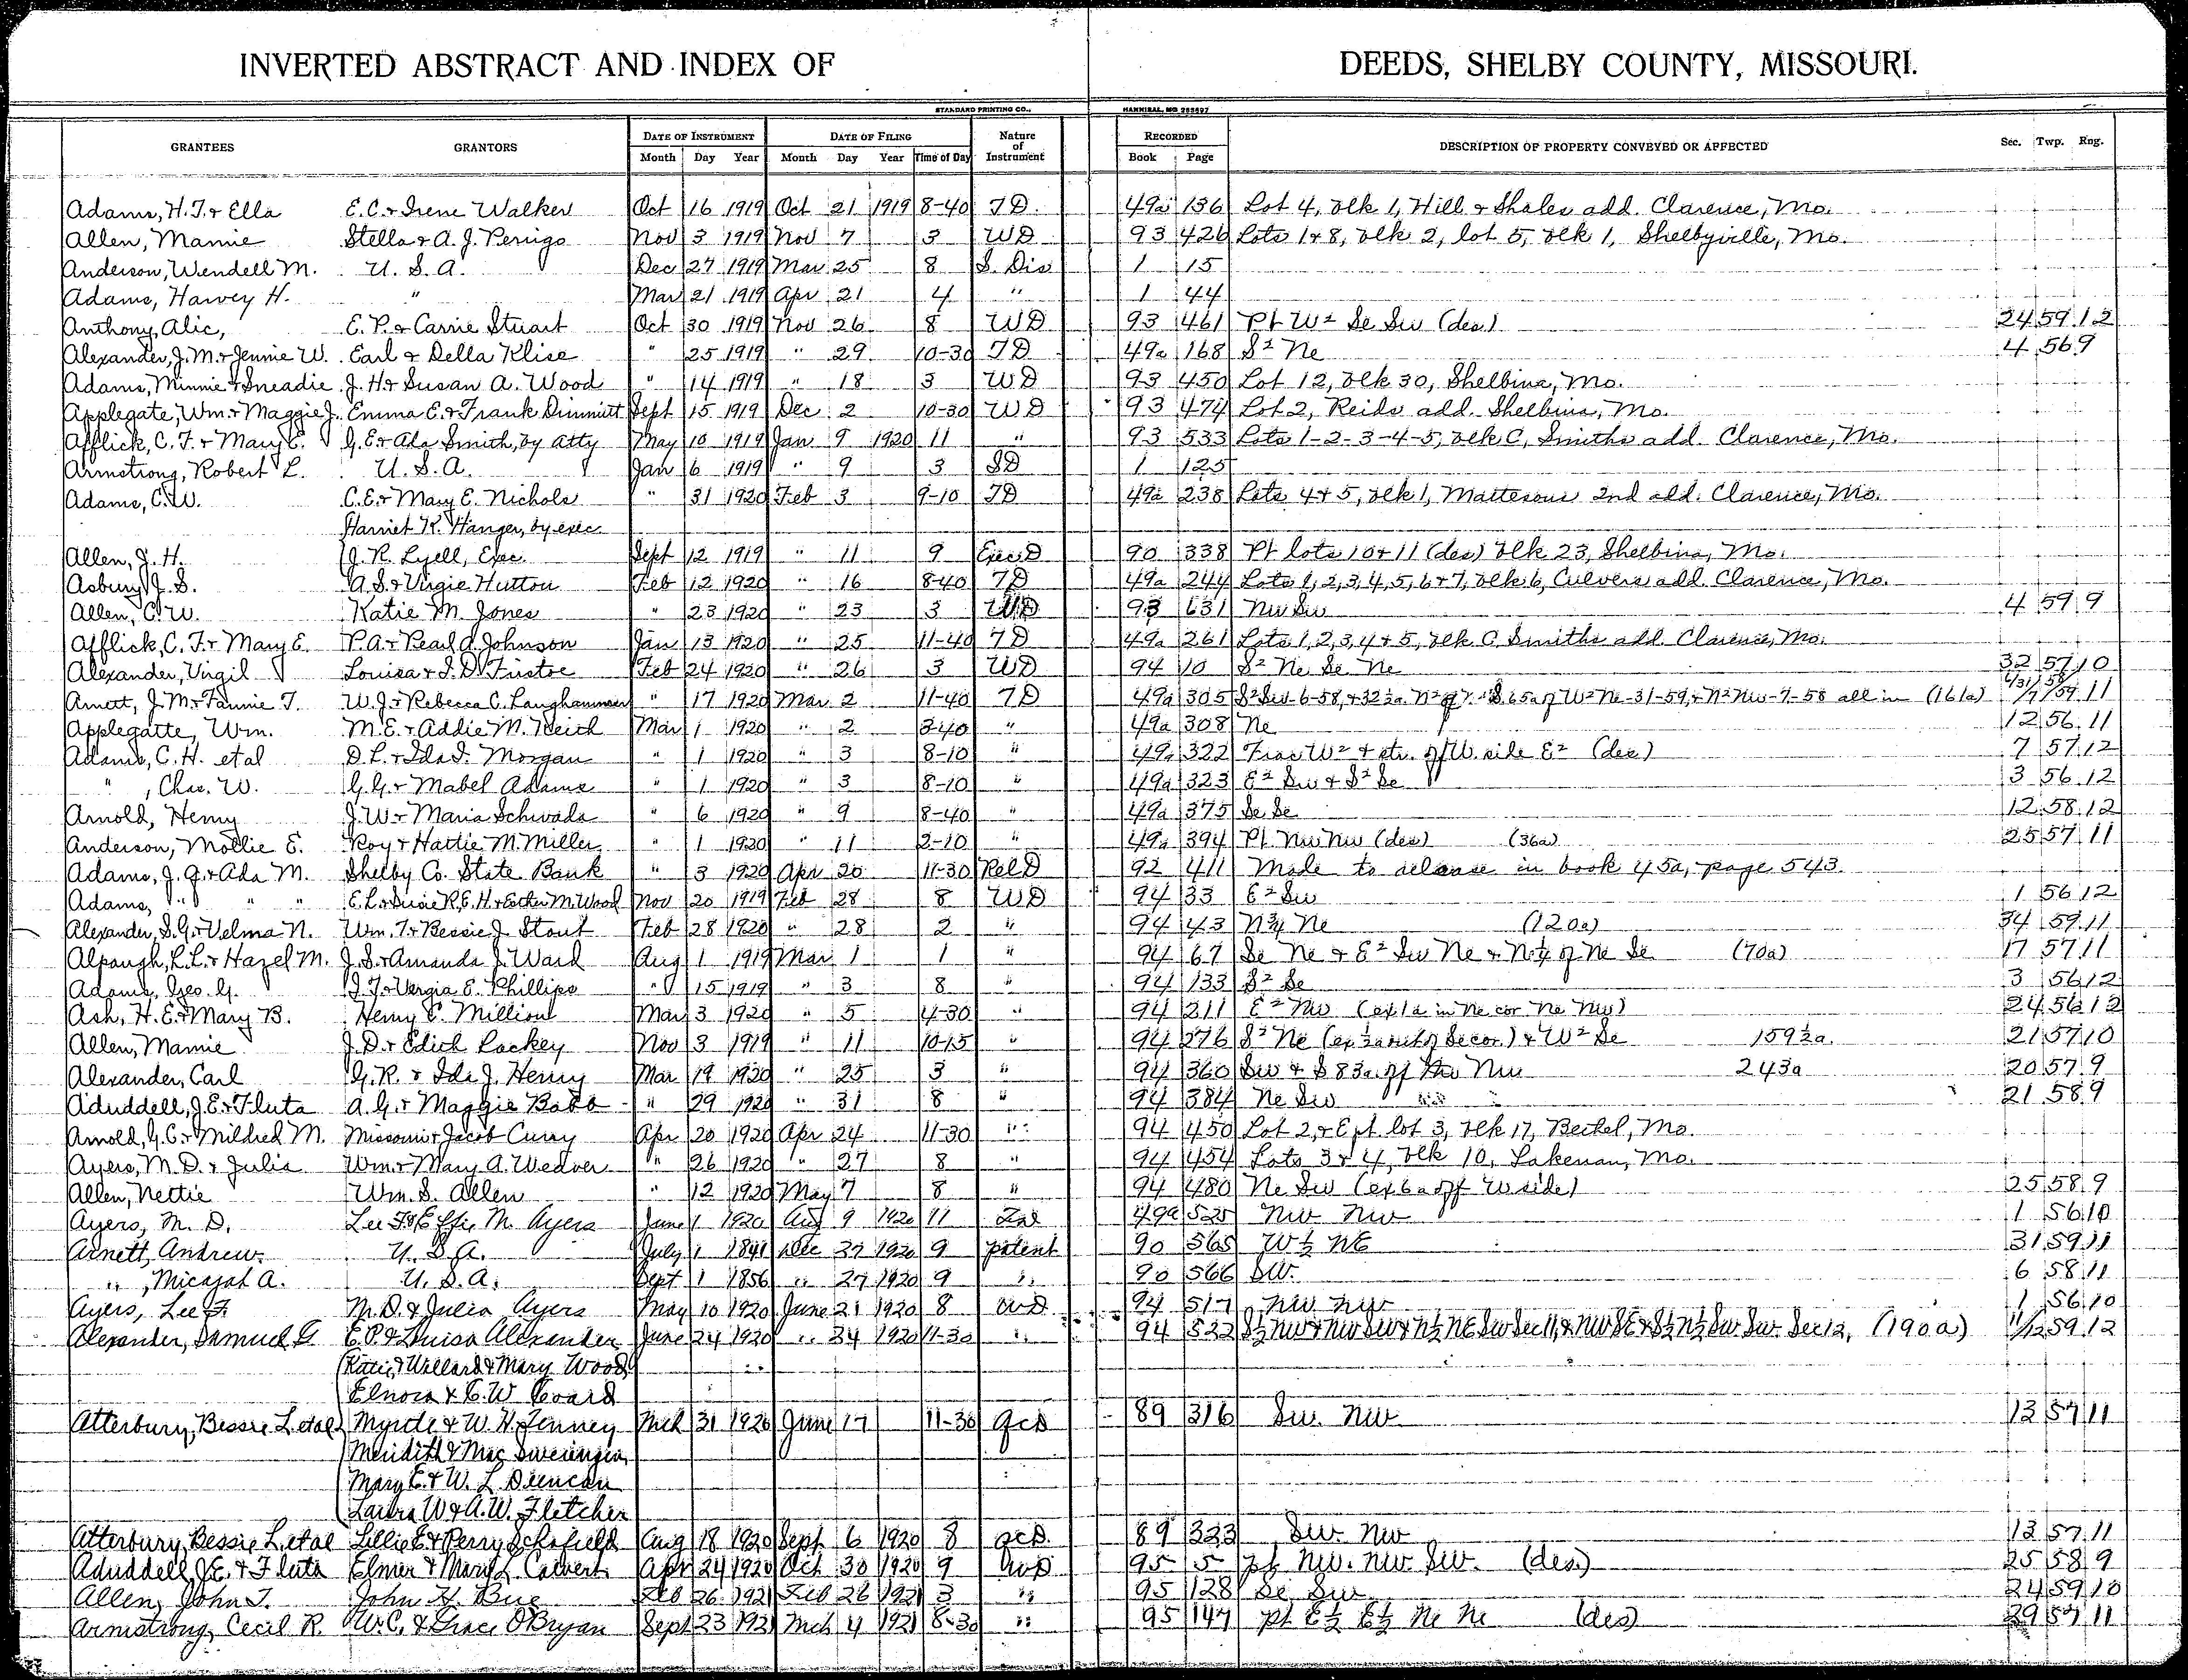 INVERTED ABSTRACT AND INDEX OF DEEDS, SHELBY COUNTY, MISSOURI.
STANDARD PRINTING CO., HANNIBAL, MO
GRANTEES GRANTORS DATE OF INSTRUMENT DATE OF FILING Nature of Instrument RECORDED DESCRIPTION OF PROPERTY CONVEYED OR AFFECTED Sec. Twp. Rng.
Month Day Year Month Day Year Time of Day Book Page
Adams, H. T. & Ella E. C. & Irene Walker Oct 16 1919 Oct 21 1919 8-40 TD 49a 136 Lot 4, Blk 1, Hill & Shales add. Clarence, Mo.
Allen, Mamie Stella & A. J. Perrigo Nov 3 1919 Nov 7 3 WD 93 426 Lots 1 & 8, Blk 2, lot 5, Blk 1, Shelbyville, Mo.
Anderson, Wendell M. U. S. A. Dec 27 1919 Mar 25 8 S. Dis 1 15
Adams, Harvey H. " Mar 21 1919 Apr 21 4 " 1 44
Anthony, Alic, E. P. & Carrie Stuart Oct 30 1919 Nov 26 8 WD 93 461 Pt W² Se Sw (des) 24 59 12
Alexander, J. M. & Jennie W. Earl & Della Klise " 25 1919 " 29 10-30 TD 49a 168 S² Ne 4 56 9
Adams, Minnie & Sneadie J. H. & Susan A. Wood " 14 1919 " 18 3 WD 93 450 Lot 12, Blk 30, Shelbina, Mo.
Applegate, Wm. & Maggie J. Emma E. & Frank Dimmitt Sept 15 1919 Dec 2 10-30 WD 93 474 Lot 2, Reids add. Shelbina, Mo.
Afflick, C. F. & Mary E. G. E. & Ada Smith, by atty May 10 1919 Jan 9 1920 11 " 93 533 Lots 1-2-3-4-5, Blk C, Smiths add. Clarence, Mo.
Armstrong, Robert L. U. S. A. Jan 6 1919 " 9 3 SD 1 125
Adams, C. W. C. E. & Mary E. Nichols " 31 1920 Feb 3 9-10 TD 49a 238 Lots 4 & 5, Blk 1, Mattesons 2nd add. Clarence, Mo.
Harriet K. Hanger, by exec
Allen, J. H. (J. R. Lyell, Exec. Sept 12 1919 " 11 9 Exec D 90 338 Pt lots 10 & 11 (des) Blk 23, Shelbina, Mo.
Asbury, J. S. A. S. & Virgie Hutton Feb 12 1920 " 16 8-40 TD 49a 244 Lots 1, 2, 3, 4, 5, 6 & 7, Blk 6, Culvers add. Clarence, Mo.
Allen, C. W. Katie M. Jones " 23 1920 " 23 3 WD 93 631 Nw Sw 4 59 9
Afflick, C. F. & Mary E. P. A. & Pearl A. Johnson Jan 13 1920 " 25 11-40 TD 49a 261 Lots 1, 2, 3, 4 & 5, Blk C Smiths add. Clarence, Mo.
Alexander, Virgil Louisa & J. D. Fustoe Feb 24 1920 " 26 3 WD 94 10 S² Ne Se Ne 32 57 10
Arnett, J. M. & Fannie T. W. J. & Rebecca C. Langhammer " 17 1920 Mar 2 11-40 TD 49a 305 S² Sw-6-58, & 32½a. N² of S 65a of W² Ne-31-59, & N² Nw-7-58 all in (161a)
Applegatte, Wm. M. E. & Addie M. Reich Mar 1 1920 " 2 3-40 " 49a 308 Ne 12 56 11
Adams, C. H. et al D. L. & Ida J. Morgan " 1 1920 " 3 8-10 " 49a 322 Frac W² & str. off W. side E² (des) 7 57 12
" , Chas. W. G. G. & Mabel Adams " 1 1920 " 3 8-10 " 49a 323 E² Sw & S² Se 3 56 12
Arnold, Henry J. W. & Maria Schwada " 6 1920 " 9 8-40 " 49a 375 Se Se 12 58 12
Anderson, Mollie E. Roy & Hattie M. Miller " 1 1920 " 11 2-10 " 49a 394 Pt Nw Nw (des) (36a) 25 57 11
Adams, J. G. & Ada M. Shelby Co. State Bank " 3 1920 Apr 20 11-30 Rel D 92 411 Made to release in book 45a, page 543.
Adams, " " " E. L. & Susie R, E. H. & Esther M. Wood Nov 20 1919 Feb 28 8 WD 94 33 E² Sw 1 56 12
Alexander, S. G. & Velma N. Wm. T. & Bessie J. Stout Feb 28 1920 " 28 2 " 94 43 N¾ Ne (120a) 34 59 11
Alpaugh, R. L. & Hazel M. J. S. & Amanda J. Ward Aug 1 1919 Mar 1 1 " 94 67 Se Ne & E² Sw Ne & N¼ of Ne Se (70a) 17 57 11
Adams, Geo. G. J. F. & Vergia E. Phillips " 15 1919 " 3 8 " 94 133 S² Se 3 56 12
Ash, H. E. & Mary B. Henry C. Million Mar 3 1920 " 5 4-30 " 94 211 E² Nw (ex 1a in Ne cor Ne Nw) 24 56 12
Allen, Mamie J. D. & Edith Lackey Nov 3 1919 " 11 10-15 " 94 276 S² Ne (ex ½a out of Se cor.) & W² Se 159½a. 21 57 10
Alexander, Carl G. R. & Ida J. Henry Mar 19 1920 " 25 3 " 94 360 Sw & S 83a. of Nw 243a 20 57 9
Aduddell, J. E. & Fluta A. G. & Maggie Babb " 29 1920 " 31 8 " 94 384 Ne Sw 21 58 9
Arnold, G. C. & Mildred M. Missouri & Jacob Curry Apr 20 1920 Apr 24 11-30 " 94 450 Lot 2, & E pt. lot 3, Blk 17, Bethel, Mo.
Ayers, M. D. & Julia Wm. & Mary A. Weaver " 26 1920 " 27 8 " 94 454 Lots 3 & 4, Blk 10, Lakenan, Mo.
Allen, Nettie Wm. S. Allen " 12 1920 May 7 8 " 94 480 Ne Sw (ex 6a off W side) 25 58 9
Ayers, M. D. Lee F. & Effie M. Ayers June 1 1920 Aug 9 1920 11 49a 525 NW NW 1 56 10
Arnett, Andrew. U. S. A. July 1 1841 Dec 27 1920 9 patent 90 565 W½ NE 31 59 11
" , Micajah A. U. S. A. Sept 1 1856 " 27 1920 9 " 90 566 SW. 6 58 11
Ayers, Lee F. M. D. & Julia Ayers May 10 1920 June 21 1920 8 WD 94 517 NW NW 1 56 10
Alexander, Samuel G E. P. & Luisa Alexander June 24 1920 " 24 1920 11-30 " 94 522 S½ NW & NW SW & N½ NE SW Sec 11, & NW SE & S½ N½ SW SW. Sec 12, (190a) 11/12 59 12
(Katie, & Willard & Mary Wood
(Elnora & C. W. Coard
Atterbury, Bessie L. et al (Myrtle & W. H. Tenney Mch 31 1920 June 17 11-30 QcD 89 316 Sw. NW 13 57 11
(Meridith & Mae Swearengin
(Mary E. & W. L. Duncan
(Laura W & A. W. Fletcher
Atterbury, Bessie L. et al Lillie E & Perry Schofield Aug 18 1920 Sept 6 1920 8 QcD. 89 323 SW. NW 13 57 11
Aduddell, J. E. & Fluta Elmer & Mary L. Calvert Apr 24 1920 Oct 30 1920 9 WD 95 5 pt NW. NW SW. (des.) 25 58 9
Allen, John T. John H. Bue Feb 26 1921 Feb 26 1921 3 " 95 128 Se Sw 24 59 10
Armstrong, Cecil R. W. C. & Grace O'Bryan Sept 23 1921 Mch 4 1921 8-30 " 95 147 pt E½ E½ Ne Ne (des) 29 57 11